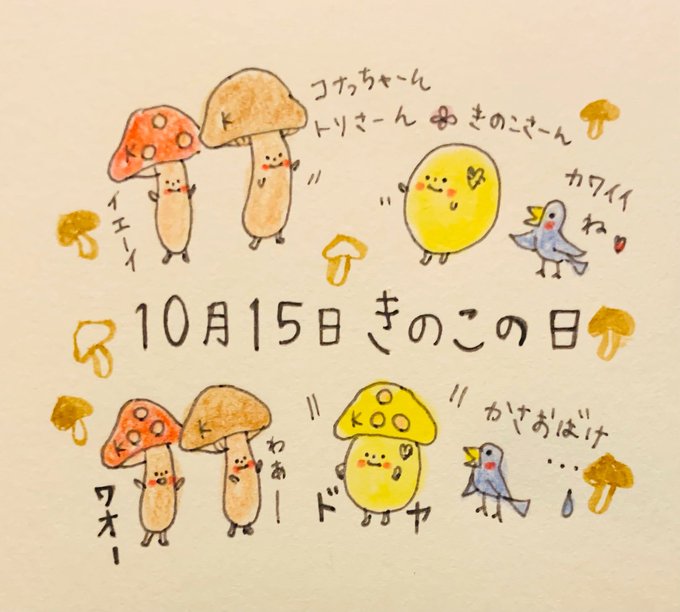 コナっちゃーん
トリさーん きのこさーん
K
K
イエーイ
カワイイ
ね
10月15日 きのこの日
K
K
K
かさおばけ
…
ワオー
わぁー
ドヤ